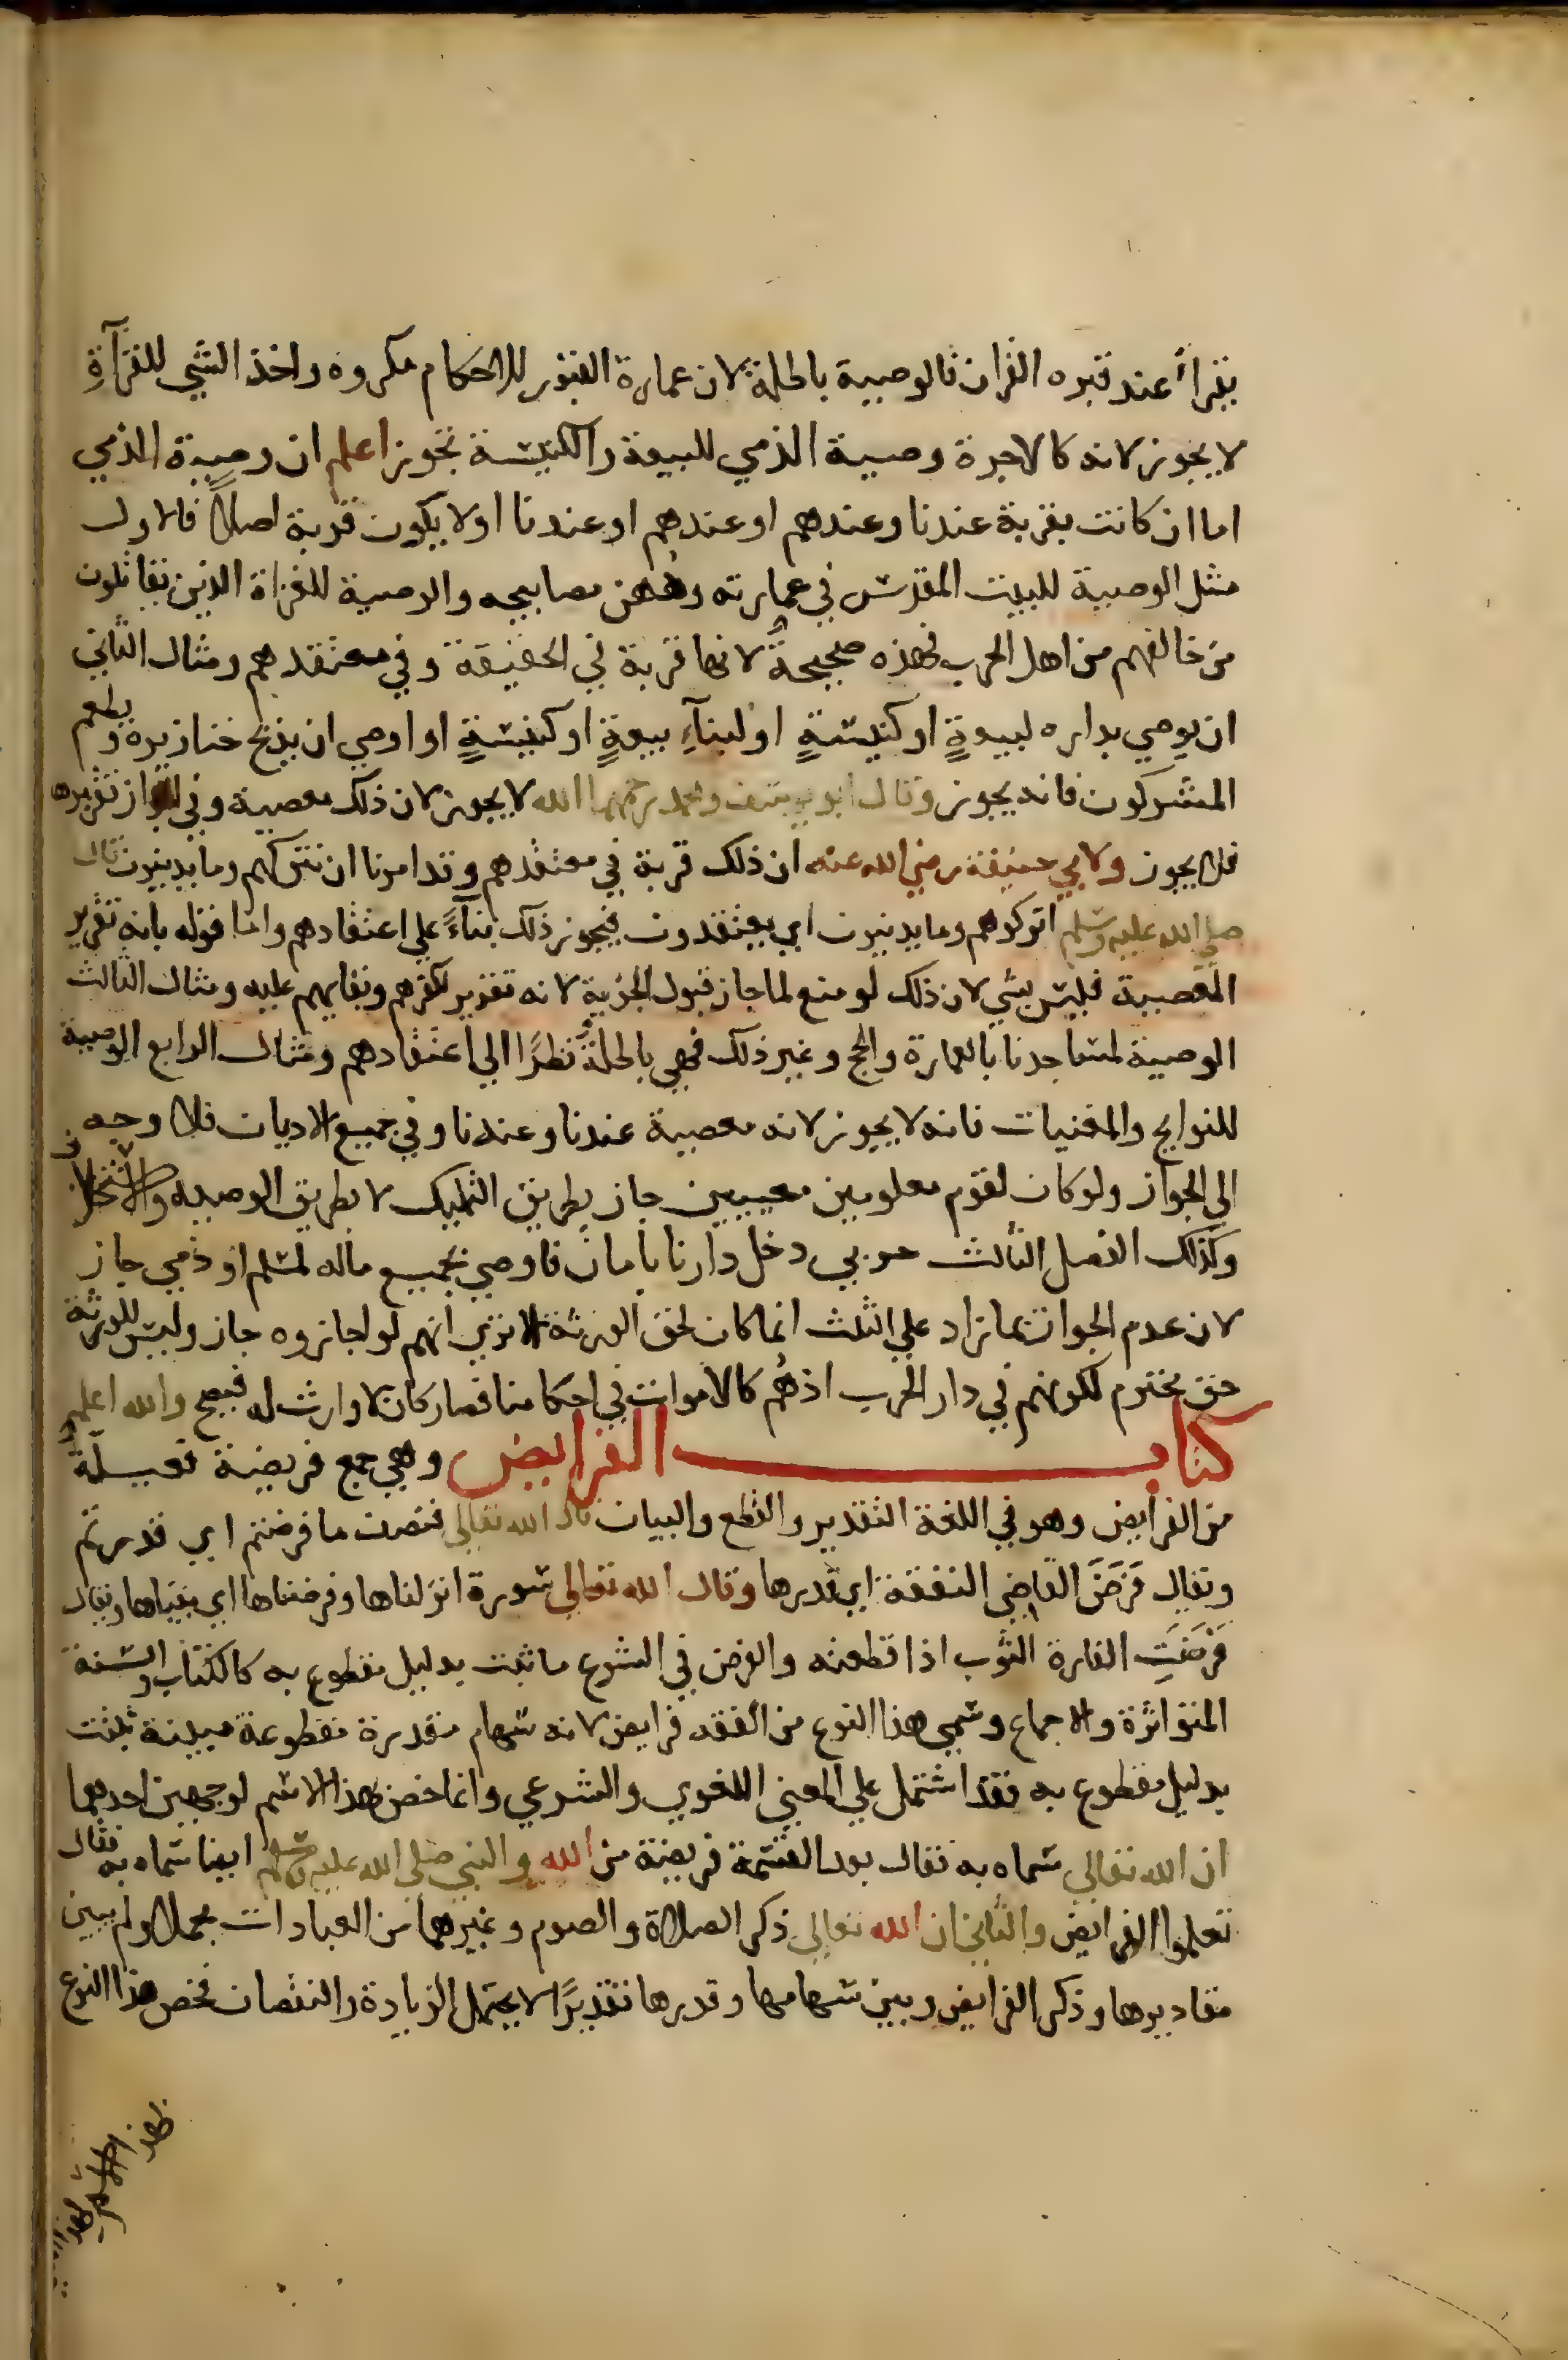 يقراء عند قبره القران فالوصية باطلة لان عمارة القبور للاحكام مكروه واخذ الشي للقرآة
لا يجوز لانه كالاجرة وصية الذمي للبيعة والكنيسة تجوز اعلم ان وصية الذمي
اما ان كانت بقربة عندنا وعندهم او عندهم او عندنا اولا يكون قربة اصلا فالاول
مثل الوصية للبيت المقدس في عمارته ودهن مصابيحه والوصية للغزاة الذين يقاتلون
من خالفهم من اهل الحرب فهذه صحيحة لانها قربة في الحقيقة وفي معتقدهم ومثال الثاني
ان يوصي بداره لبيعةٍ او كنيسةٍ او لبنآءِ بيعةٍ او كنيسةٍ او اوصي ان يذبح خنازيره ويطعم
المشركون فانه يجوز وقال ابو يوسف ومحمد رحمهما الله لا يجوز لان ذلك معصية وفي الجواز تقريرها
فلا يجوز ولابي حنيفة رضي الله عنه ان ذلك قربة في معتقدهم وقد امرنا ان نتركهم وما يدينون قال
صلي الله عليه وسلم اتركوهم وما يدينون اي يعتقدون فيجوز ذلك بنآءً علي اعتقادهم واما قوله بانه تقرير
المعصية فليس بشي لان ذلك لو منع لما جاز قبول الجزية لانه تقرير لكفرهم وبقايهم عليه ومثال الثالث
الوصية لمساجدنا بالعمارة والحج وغير ذلك فهي باطلة نظرًا الي اعتقادهم ومثال الرابع الوصية
للنوايح والمغنيات فانه لا يجوز لانه معصية عندنا وعندنا وفي جميع الاديان فلا وجه
الي الجواز ولو كان لقوم معلومين معينين جاز بطريق التمليك لا بطريق الوصية والاستخلاف
وكذلك الفصل الثالث حربي دخل دارنا بامان فاوصي بجميع ماله لمسلم او ذمي جاز
لان عدم الجواز بما زاد علي الثلث انما كان لحق الورثة الا تري انهم لو اجازوه جاز وليس للورثة
حق محترم لكونهم في دار الحرب اذ هُم كالاموات في احكامنا فصار كان لا وارث له فيصح والله اعلم
كتاب الفرايض وهي جمع فريضة فعيلة
من الفرايض وهو في اللغة التقدير والقطع والبيان قال الله تعالي فنصف ما فرضتم اي قدرتم
ويقال فَرَضَ القاضي النفقة اي قدرها وقال الله تعالي سورة انزلناها وفرضناها اي بيناها ويقال
فَرَضَتِ الفارة الثوب اذا قطعته والفرض في الشرع ما ثبت بدليل مقطوع به كالكتاب والسنة
المتواترة والاجماع وسمي هذا النوع من الفقه فرايض لانه سهام مقدرة مقطوعة مبينة ثبتت
بدليل مقطوع به فقد اشتمل علي المعني اللغوي والشرعي وانما خص بهذا الاسم لوجهين احدهما
ان الله تعالي سماه به فقال بعد القسمة فريضة من الله والنبي صلي الله عليه وسلم ايضا سماه به فقال
تعلموا الفرايض والثاني ان الله تعالي ذكر الصلاة والصوم وغيرهما من العبادات مجملا ولم يبين
مقاديرها وذكر الفرايض وبين سهامها وقدرها تقديرًا لا يحتمل الزيادة والنقصان فخص هذا النوع